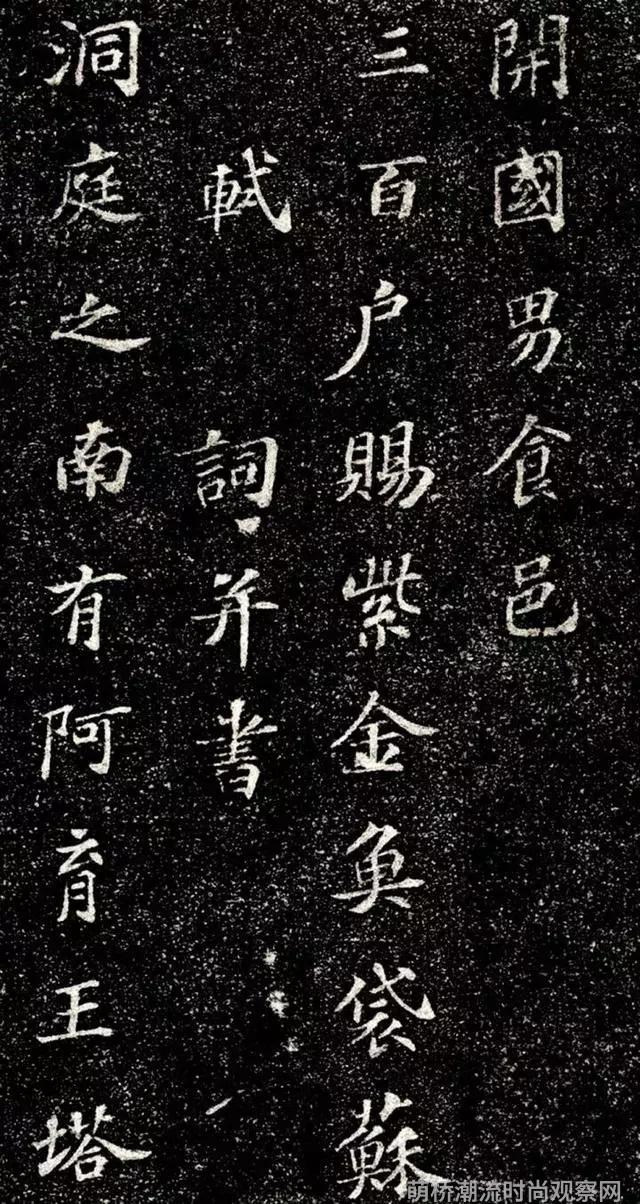 開國男食邑
三百户賜紫金魚袋蘇
軾 詞并書
洞庭之南有阿育王塔
萌桥潮流时尚观察网